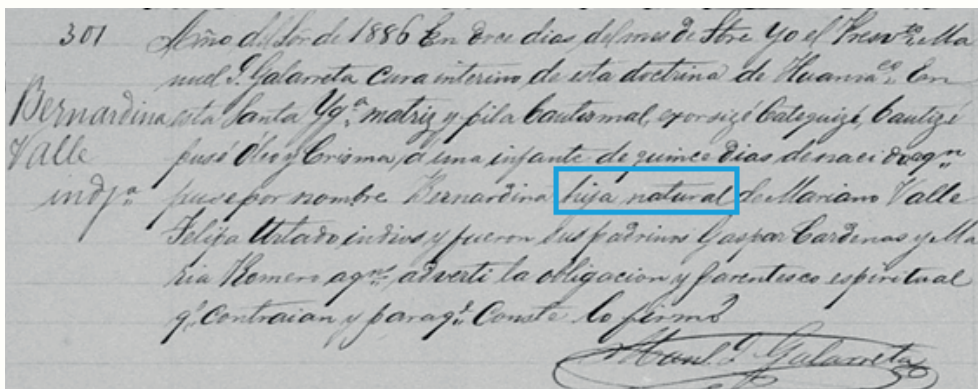 301 Año del Sor de 1886 En doce dias, del mes de Stre Yo el Presvto Ma
nuel J. Galarreta Cura interino de esta doctrina de Huania co En
Bernardina esta Santa Yga matriz y pila bautismal, exorsizé Catequizé, bautizé
Valle pusé Óleo y Crisma, á una infante de quince dias de nacida aqn
indja puse por nombre Bernardina hija natural de Mariano Valle
Feliza Urtado indios y fueron sus padrinos Gaspar Cardenas y Ma
ria Romero aqns adverti la obligacion y parentesco espiritual
q. Contraian y paraqe Conste lo firmo
Manl J Galarreta